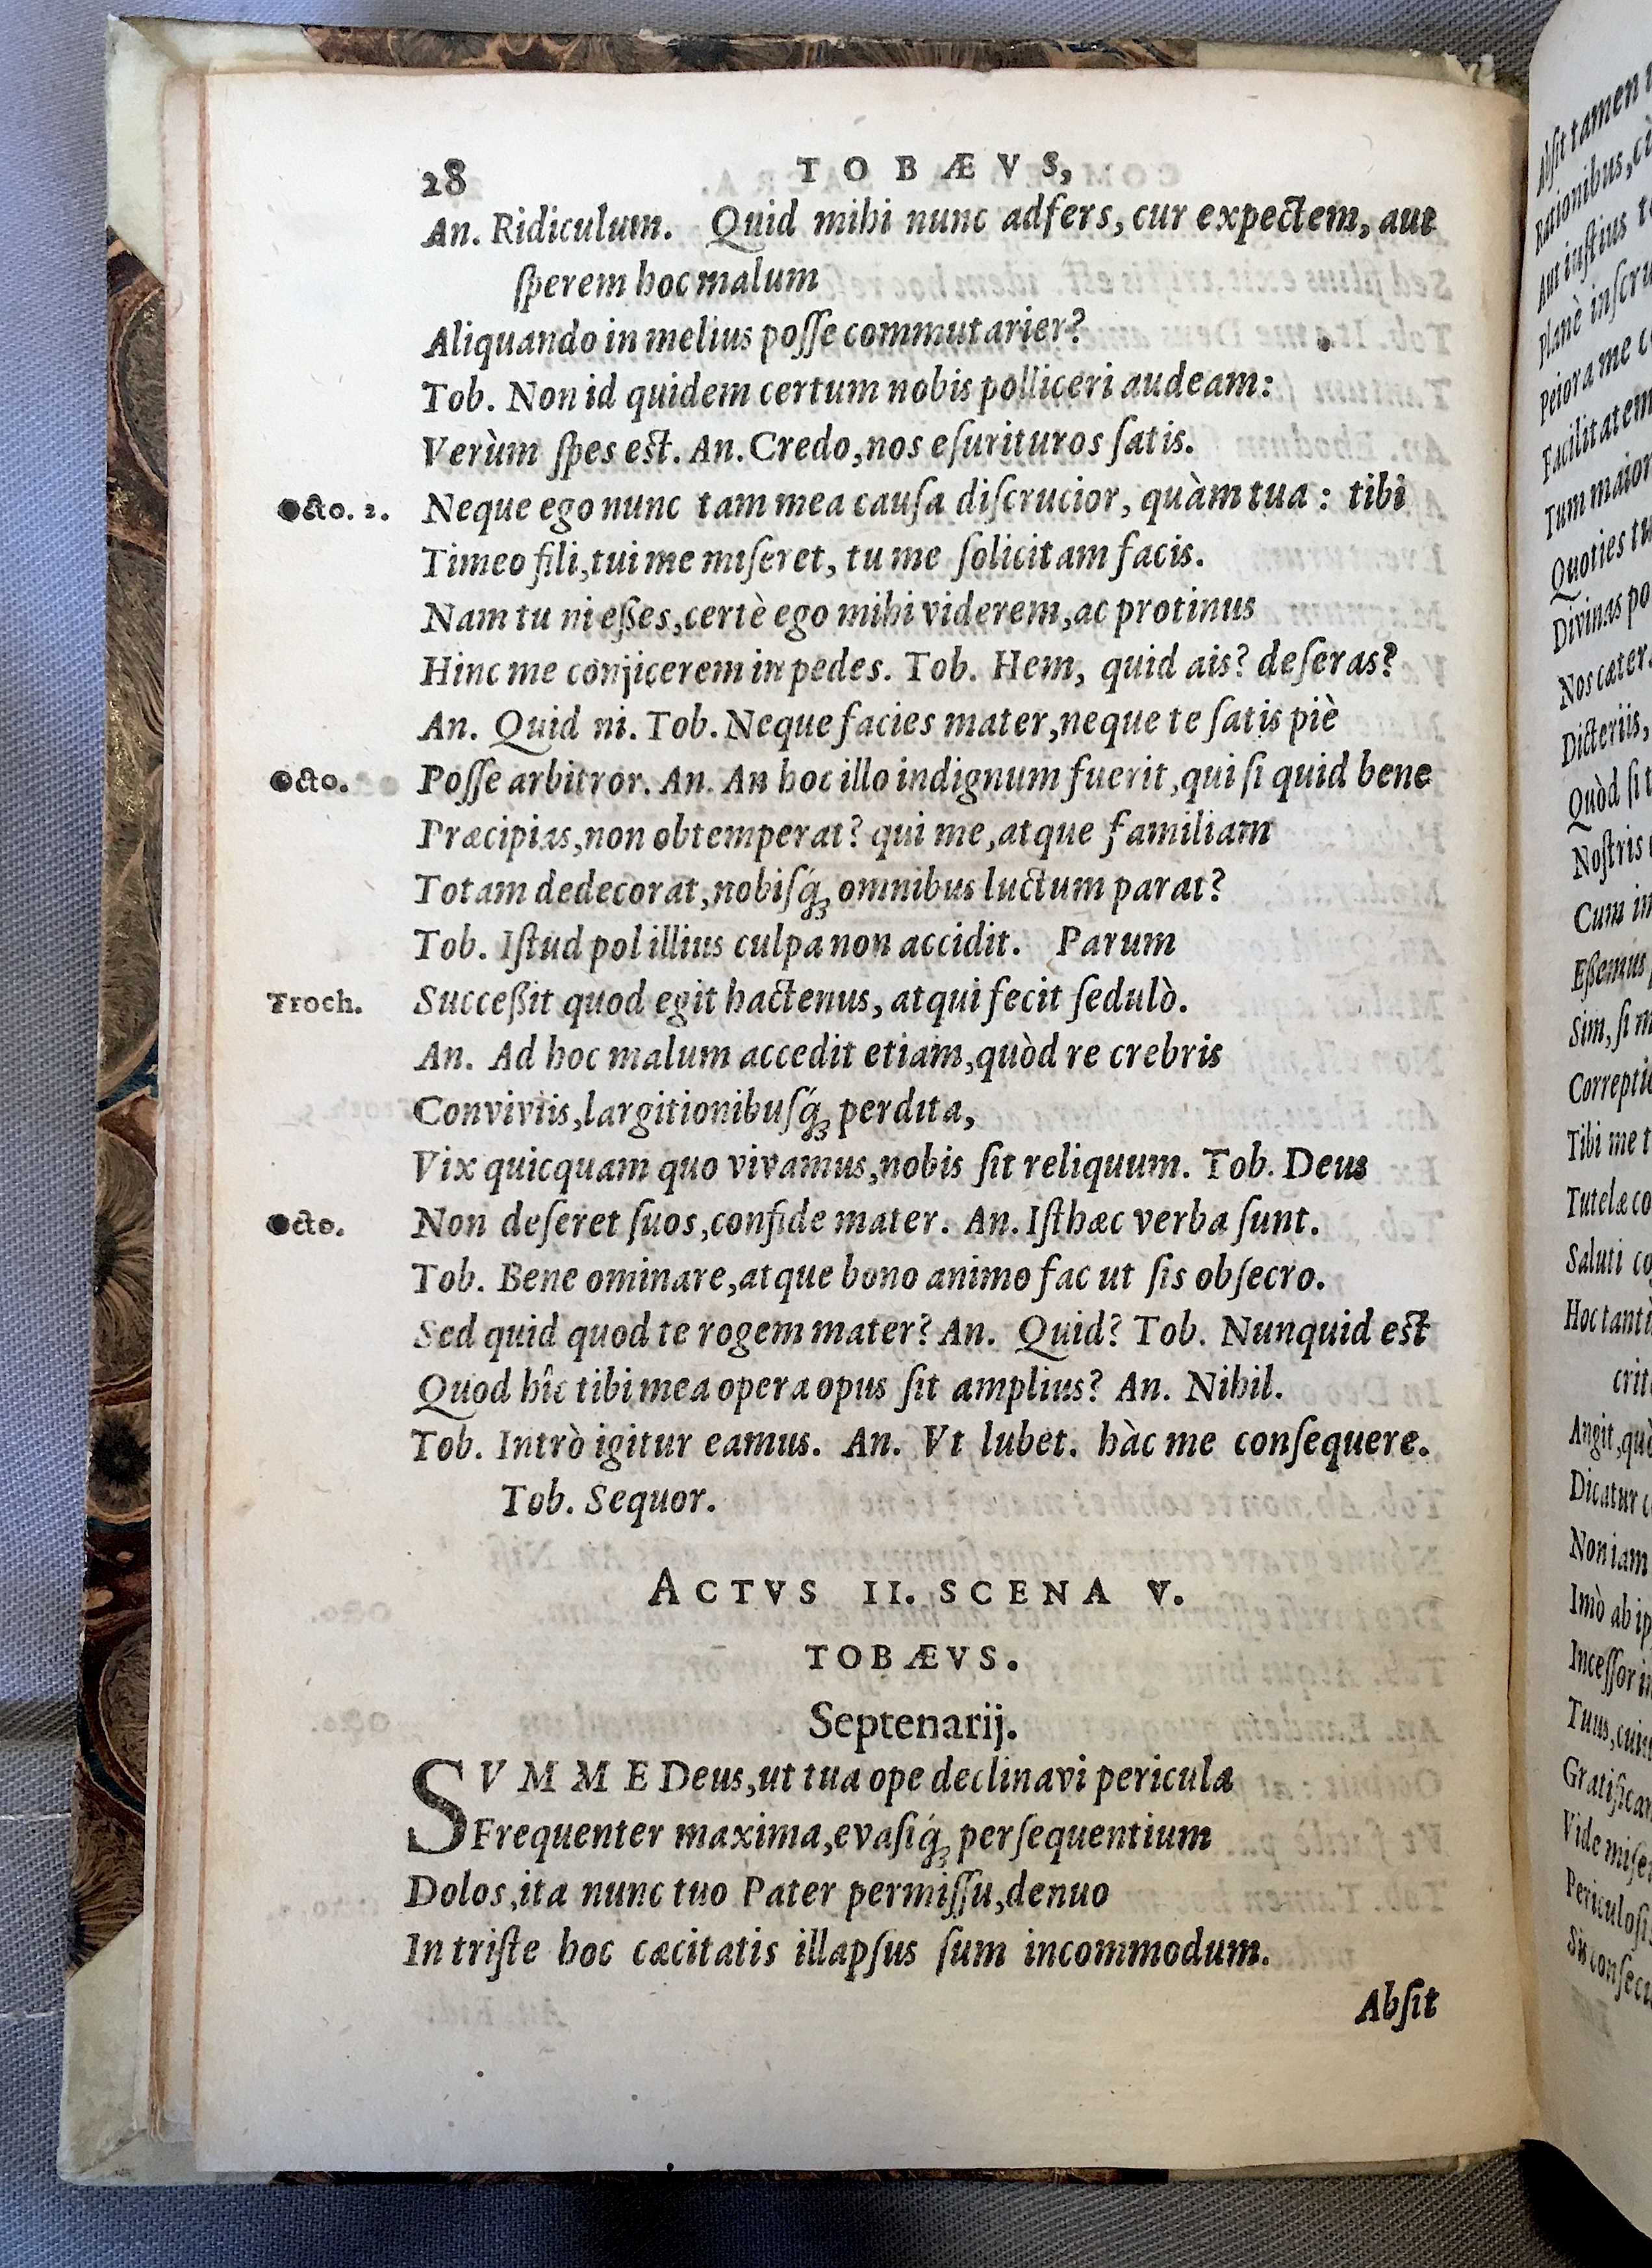 28 TOBÆVS,
An. Ridiculum. Quid mihi nunc adfers, cur expectem, aut
ſperem hoc malum
Aliquando in melius poſſe commutarier?
Tob. Non id quidem certum nobis polliceri audeam:
Verùm ſpes est. An. Credo, nos eſurituros ſatis.
Octo. 2. Neque ego nunc tam mea cauſa diſcrucior, quàm tua: tibi
Timeo fili, tui me miſeret, tu me ſolicitam facis.
Nam tu ni eſſes, certè ego mihi viderem, ac protinus
Hinc me conjicerem in pedes. Tob. Hem, quid ais? deſeras?
An. Quid ni. Tob. Neque facies mater, neque te ſatis piè
Octo. Poſſe arbitror. An. An hoc illo indignum fuerit, qui ſi quid bene
Præcipias, non obtemperat? qui me, atque familiam
Totam dedecorat, nobiſq́; omnibus luctum parat?
Tob. Iſtud pol illius culpa non accidit. Parum
Troch. Succeßit quod egit hactenus, atqui fecit ſedulò.
An. Ad hoc malum accedit etiam, quòd re crebris
Conviviis, largitionibuſq́; perdita,
Vix quicquam quo vivamus, nobis ſit reliquum. Tob. Deus
Octo. Non deſeret ſuos, confide mater. An. Iſthæc verba ſunt.
Tob. Bene ominare, atque bono animo fac ut ſis obſecro.
Sed quid quod te rogem mater? An. Quid? Tob. Nunquid est
Quod hîc tibi mea opera opus ſit amplius? An. Nihil.
Tob. Intrò igitur eamus. An. Vt lubet. hàc me conſequere.
Tob. Sequor.
ACTVS II. SCENA V.
TOBÆVS.
Septenarij.
SVMME Deus, ut tua ope declinavi pericula
Frequenter maxima, evaſiq́; perſequentium
Dolos, ita nunc tuo Pater permiſſu, denuo
In triſte hoc cæcitatis illapſus ſum incommodum.
Abſit
Abſit tamen
Rationibus,
Aut iuſtius
Planè
Peiora me
Facilitatem
Tum maior
Quoties
Divinas
Nos
Dicteriis,
Quòd ſi
Noſtris
Cum
Eßemus
Sim, ſi
Tibi me
Saluti
Angit,
Dicatur
Non iam
Imò ab
Inceſſor
Tuus,
Vide